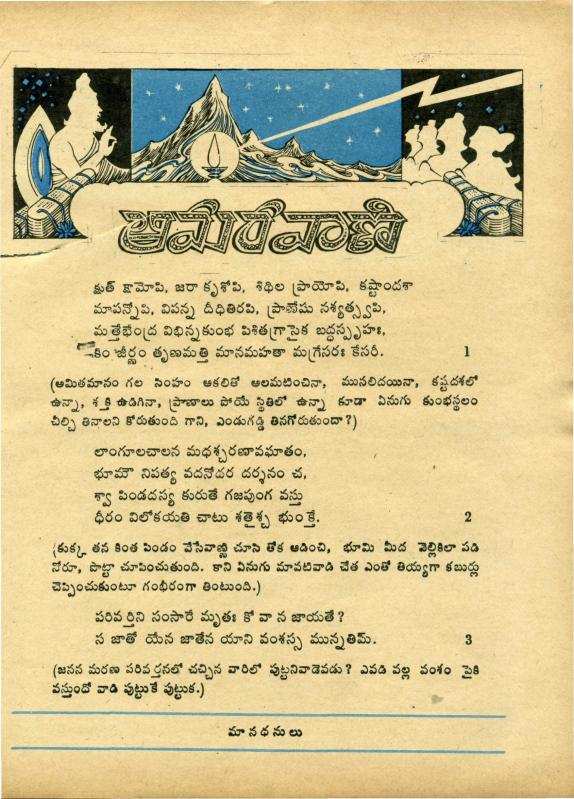 అమరవాణి
క్షుత్ క్షామోపి, జరా కృశోపి, శిథిల ప్రాయోపి, కష్టాందశా
మాపన్నోపి, విపన్న దీధితిరపి, ప్రాణేషు నశ్యత్స్వపి,
మత్తేభేంద్ర విభిన్నకుంభ పిశితగ్రాసైక బద్ధస్పృహః,
కిం జీర్ణం తృణమత్తి మానమహతా మగ్రేసరః కేసరీ. 1
(అమితమానం గల సింహం ఆకలితో అలమటించినా, ముసలిదయినా, కష్టదశలో
ఉన్నా, శక్తి ఉడిగినా, ప్రాణాలు పోయే స్థితిలో ఉన్నా కూడా ఏనుగు కుంభస్థలం
చీల్చి తినాలని కోరుతుంది గాని, ఎండుగడ్డి తినగోరుతుందా?)
లాంగూలచాలన మధశ్చరణావఘాతం,
భూమౌ నిపత్య వదనోదర దర్శనం చ,
శ్వా పిండదస్య కురుతే గజపుంగ వస్తు
ధీరం విలోకయతి చాటు శతైశ్చ భుంక్తే. 2
(కుక్క తన కింత పిండం వేసేవాణ్ణి చూసి తోక ఆడించి, భూమి మీద వెల్లికిలా పడి
నోరూ, పొట్టా చూపించుతుంది. కాని ఏనుగు మావటివాడి చేత ఎంతో తియ్యగా కబుర్లు
చెప్పించుకుంటూ గంభీరంగా తింటుంది.)
పరివర్తిని సంసారే మృతః కో వా న జాయతే?
స జాతో యేన జాతేన యాని వంశస్స మున్నతిమ్. 3
(జనన మరణ పరివర్తనలో చచ్చిన వారిలో పుట్టనివాడెవడు? ఎవడి వల్ల వంశం పైకి
వస్తుందో వాడి పుట్టుకే పుట్టుక.)
మానధనులు